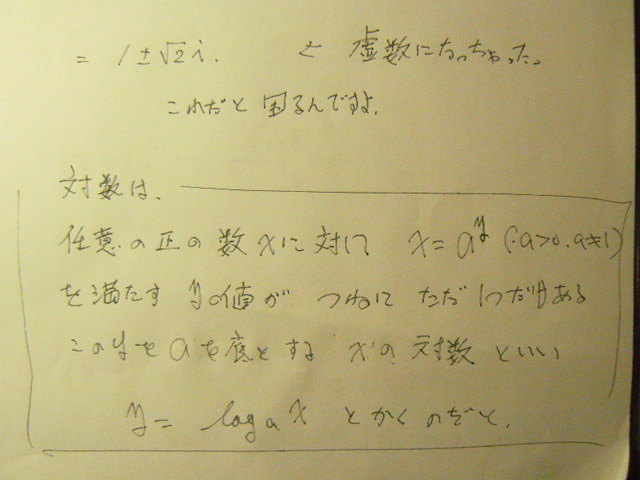 = 1±√2i. と 虚数になっちゃった。
これだと 困るんですよ。
対数は、
任意の正の数xに対して x=a^y (a>0. a≠1)
を満たす yの値が つねに ただ1つだけある
このyを aを底とする xの対数 といい
y= log_a x とかくのだと.